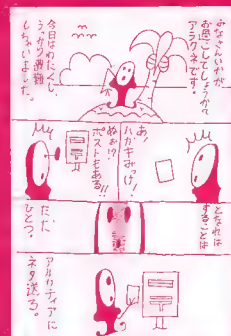 みなさんいかが
お過ごしでしょうか?
アラクネです。
今日はわたくし、
うっかり遭難
しちゃいました。
あ!
ハガキみっけ!
ぬぉ!?
ポストもある!!
となれば
することは
ただ
ひとつ。
アルカディアに
ネタ送ろ。